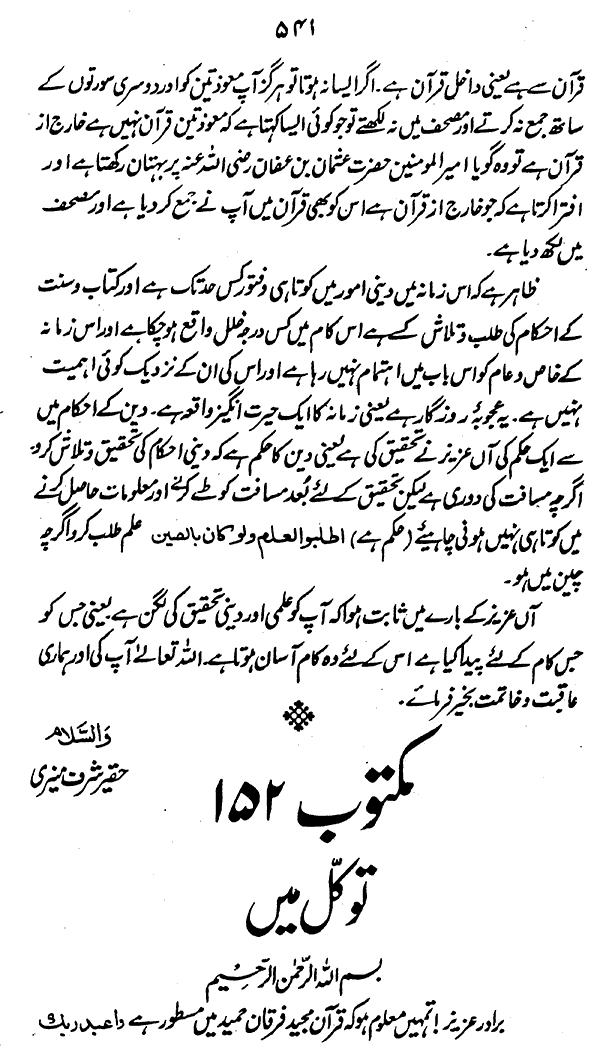 ۵۴۱
قرآن سے ہے یعنی داخل قرآن ہے۔ اگر ایسا نہ ہوتا تو ہرگز آپ معوذ تین کو اور دوسری سورتوں کے
ساتھ جمع نہ کرتے اور مصحف میں نہ لکھتے تو جو کوئی ایسا کہتا ہے کہ معوذ تین قرآن نہیں ہے خارج از
قرآن ہے تو وہ گویا امیر المومنین حضرت عثمان بن عفان رضی اللہ عنہ پر بہتان رکھتا ہے اور
افترا کرتا ہے کہ جو خارج از قرآن ہے اس کو بھی قرآن میں آپ نے جمع کر دیا ہے اور مصحف
میں لکھ دیا ہے۔
ظاہر ہے کہ اس زمانہ میں دینی امور میں کوتاہی و فتور کس حد تک ہے اور کتاب و سنت
کے احکام کی طلب و تلاش کسے ہے اس کام میں کس درجہ خلل واقع ہو چکا ہے اور اس زمانہ
کے خاص و عام کو اس باب میں اہتمام نہیں رہا ہے اور اس کی ان کے نزدیک کوئی اہمیت
نہیں ہے۔ یہ عجوبۂ روزگار ہے یعنی زمانہ کا ایک حیرت انگیز واقعہ ہے۔ دین کے احکام میں
سے ایک حکم کی آں عزیز نے تحقیق کی ہے یعنی دین کا حکم ہے کہ دینی احکام کی تحقیق و تلاش کرو
اگرچہ مسافت کی دوری ہے لیکن تحقیق کے لئے بُعد مسافت کو طے کرنے اور معلومات حاصل کرنے
میں کوتاہی نہیں ہونی چاہیئے (حکم ہے) اطلبوالعلم ولوکان بالصین علم طلب کرو اگرچہ
چین میں ہو۔
آں عزیز کے بارے میں ثابت ہوا کہ آپ کو علمی اور دینی تحقیق کی لگن ہے یعنی جس کو
جس کام کے لئے پیدا کیا ہے اس کے لئے وہ کام آسان ہوتا ہے۔ اللہ تعالےٰ آپ کی اور ہماری
عاقبت و خاتمت بخیر فرمائے۔
والسّلام
حقیر شرف منیری
مکتوب ۱۵۲
توکّل میں
بسم اللہ الرّحمٰن الرّحیم
برادر عزیز! تمہیں معلوم ہو کہ قرآن مجید فرقان حمید میں مسطور ہے واعبد ربک و